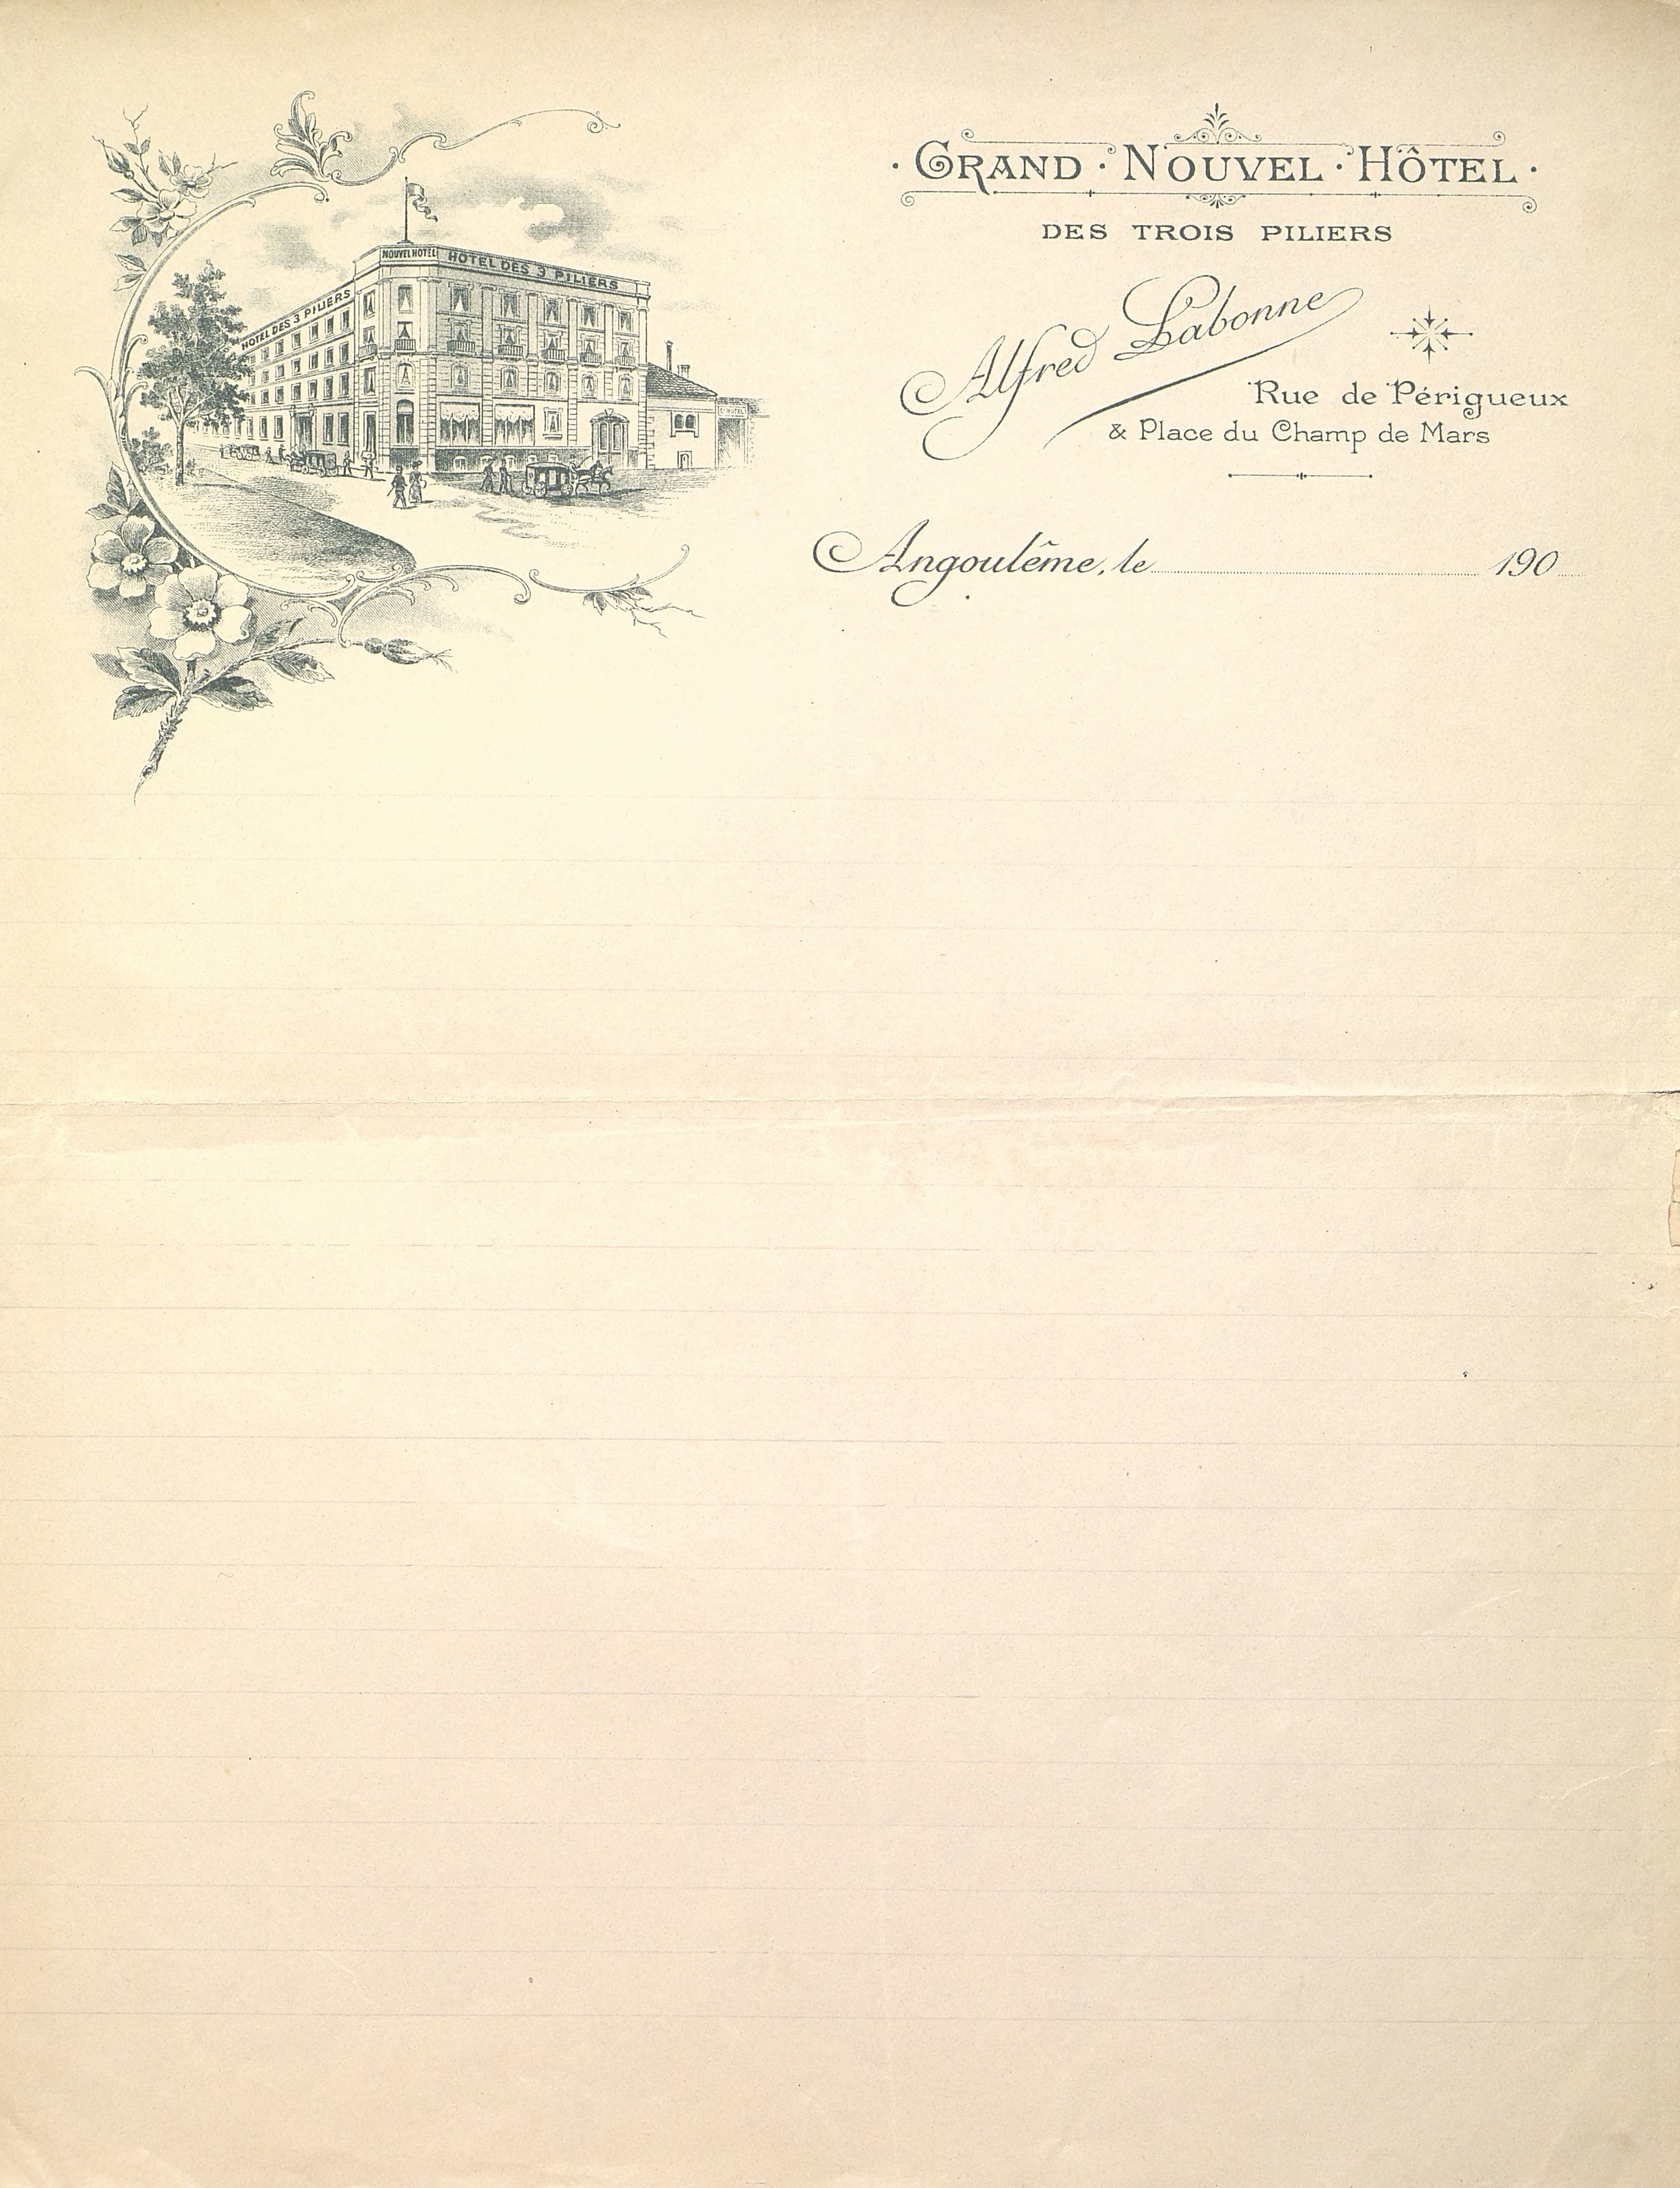 NOUVEL HOTEL HOTEL DES 3 PILIERS
HOTEL DES 3 PILIERS
· GRAND · NOUVEL · HÔTEL ·
DES TROIS PILIERS
Alfred Labonne
Rue de Périgueux
& Place du Champ de Mars
Angoulême, le 190